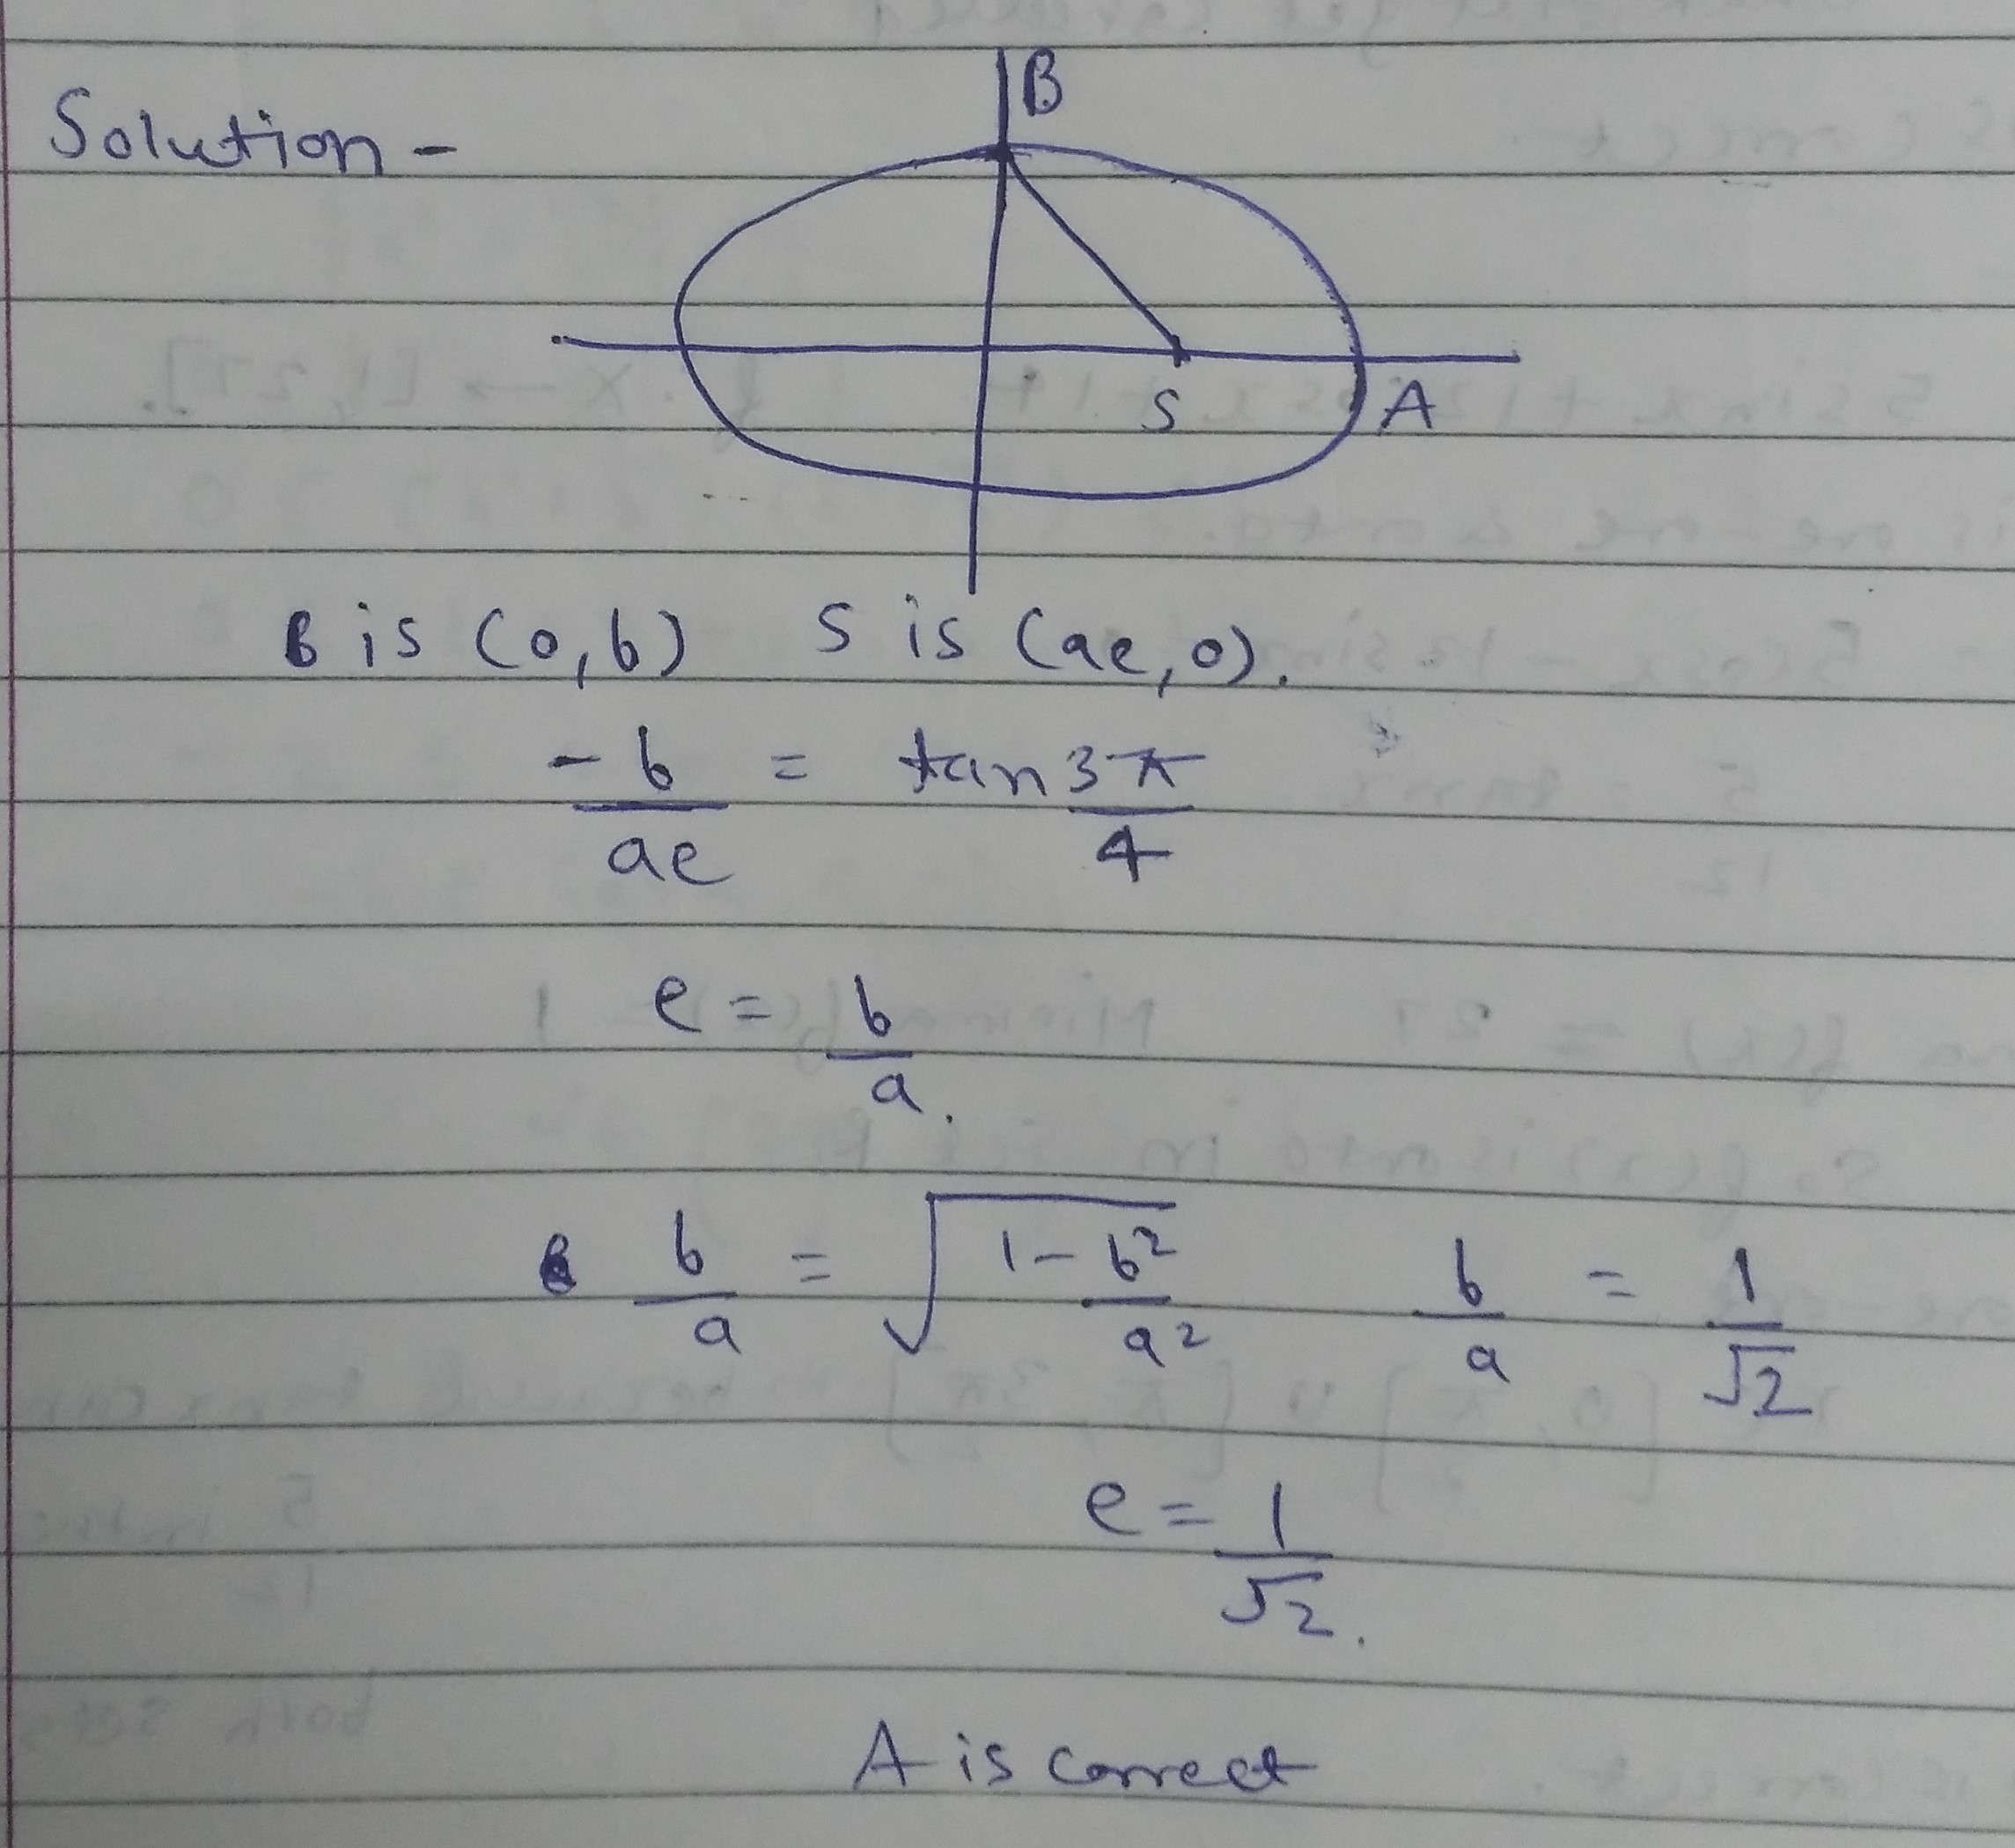 B
Solution -
S A
B is (0,b) S is (ae,0).
-b/ae = tan 3π/4
e = b/a.
b/a = √(1-b²/a²) b/a = 1/√2
e = 1/√2.
A is correct